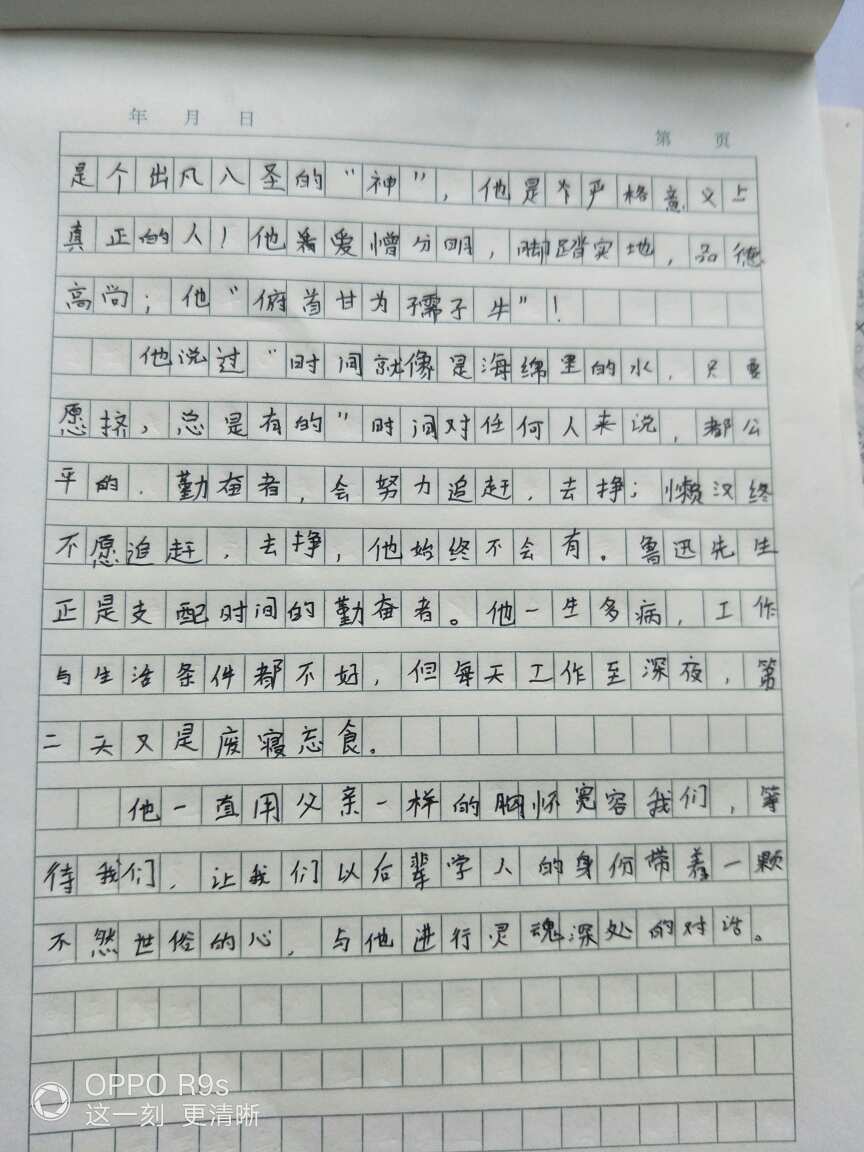 年 月 日
第 页
是个出凡八圣的“神”，他是个严格意义上
真正的人！他着爱憎分明，脚踏实地，品德
高尚；他“俯首甘为孺子牛”！
他说过“时间就像是海绵里的水，只要
愿挤，总是有的”时间对任何人来说，都公
平的．勤奋者，会努力追赶，去挣；懒汉终
不愿追赶，去挣，他始终不会有。鲁迅先生
正是支配时间的勤奋者。他一生多病，工作
与生活条件都不好，但每天工作至深夜，第
二天又是废寝忘食。
他一直用父亲一样的胸怀宽容我们，等
待我们，让我们以后辈学人的身份带着一颗
不然世俗的心，与他进行灵魂深处的对话。
OPPO R9s
这一刻 更清晰